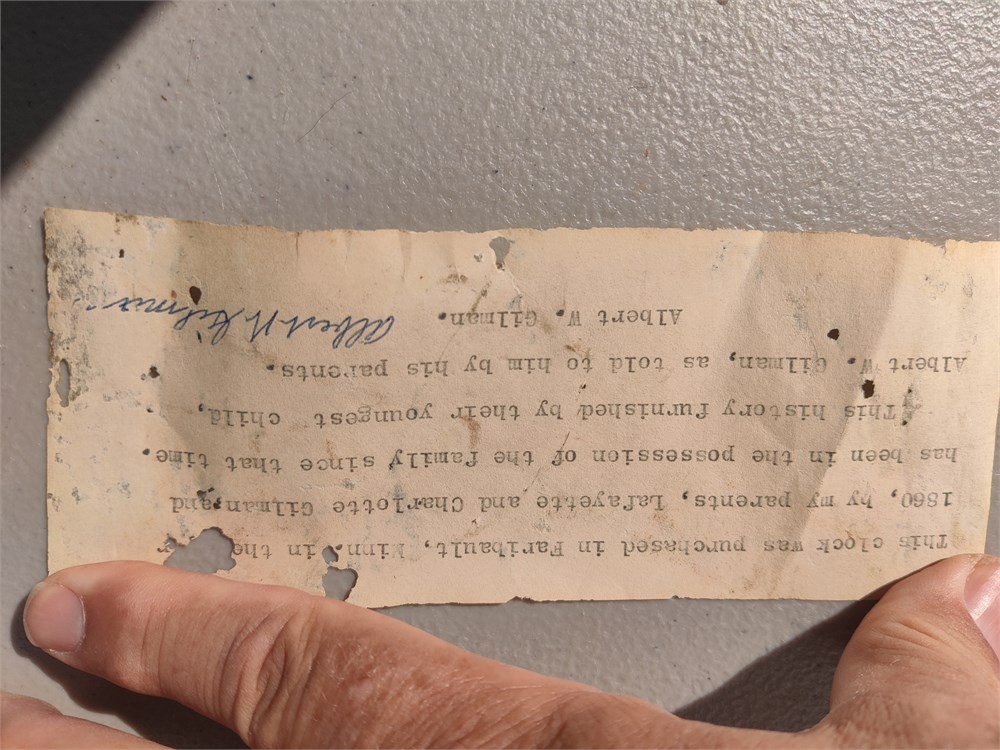 This clock was purchased in Faribault, Minn. in the
1860, by my parents, Lafayette and Charlotte Gilman, and
has been in the possession of the family since that time.
This history furnished by their youngest child,
Albert W. Gilman, as told to him by his parents.
Albert W. Gilman.
Albert W. Gilman